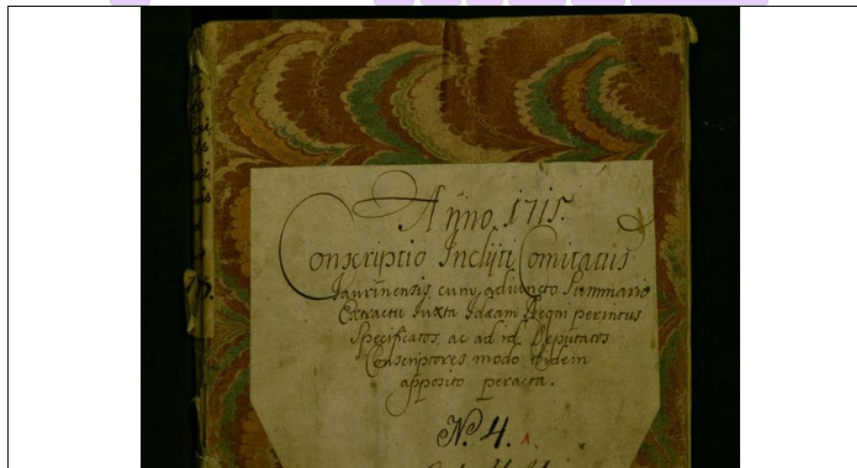 Anno 1715.
Conscriptio Inclijti Comitatus
Jaurinensis, cum adiuncto Summario
Extractu Iuxta Idaeam Regni perintus
Specificatos, ac ad id Deputatos
Conscriptores modo ibidem
apposito peracta.
No. 4. 1.